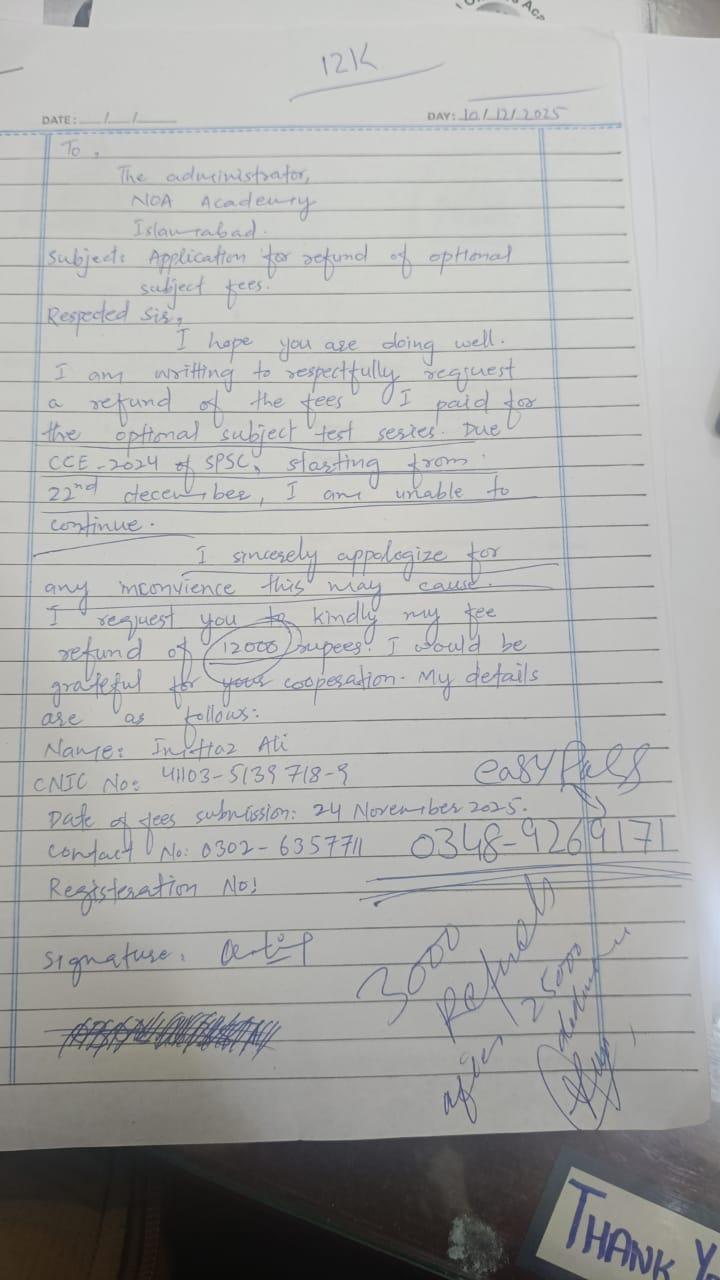 12K
DATE: __/__/____
DAY: 10/12/2025
To,
The administrator,
NOA Academy
Islamabad.
Subject: Application for refund of optional
subject fees.
Respected Sir,
I hope you are doing well.
I am writting to respectfully request
a refund of the fees I paid for
the optional subject test series. Due
CCE-2024 of SPSC, starting from
22nd december, I am unable to
continue.
I sincerely appologize for
any inconvience this may cause.
I request you to kindly my fee
refund of 12000 rupees. I would be
grateful for your cooperation. My details
are as follows:
Name: Imtiaz Ali
CNIC No: 41103-5139718-9
easy
Date of fees submission: 24 November 2025.
Contact No: 0302-6357711
0348-9269171
Registeration No:
Signature:
3000
Refund
after 25000
THANK Y